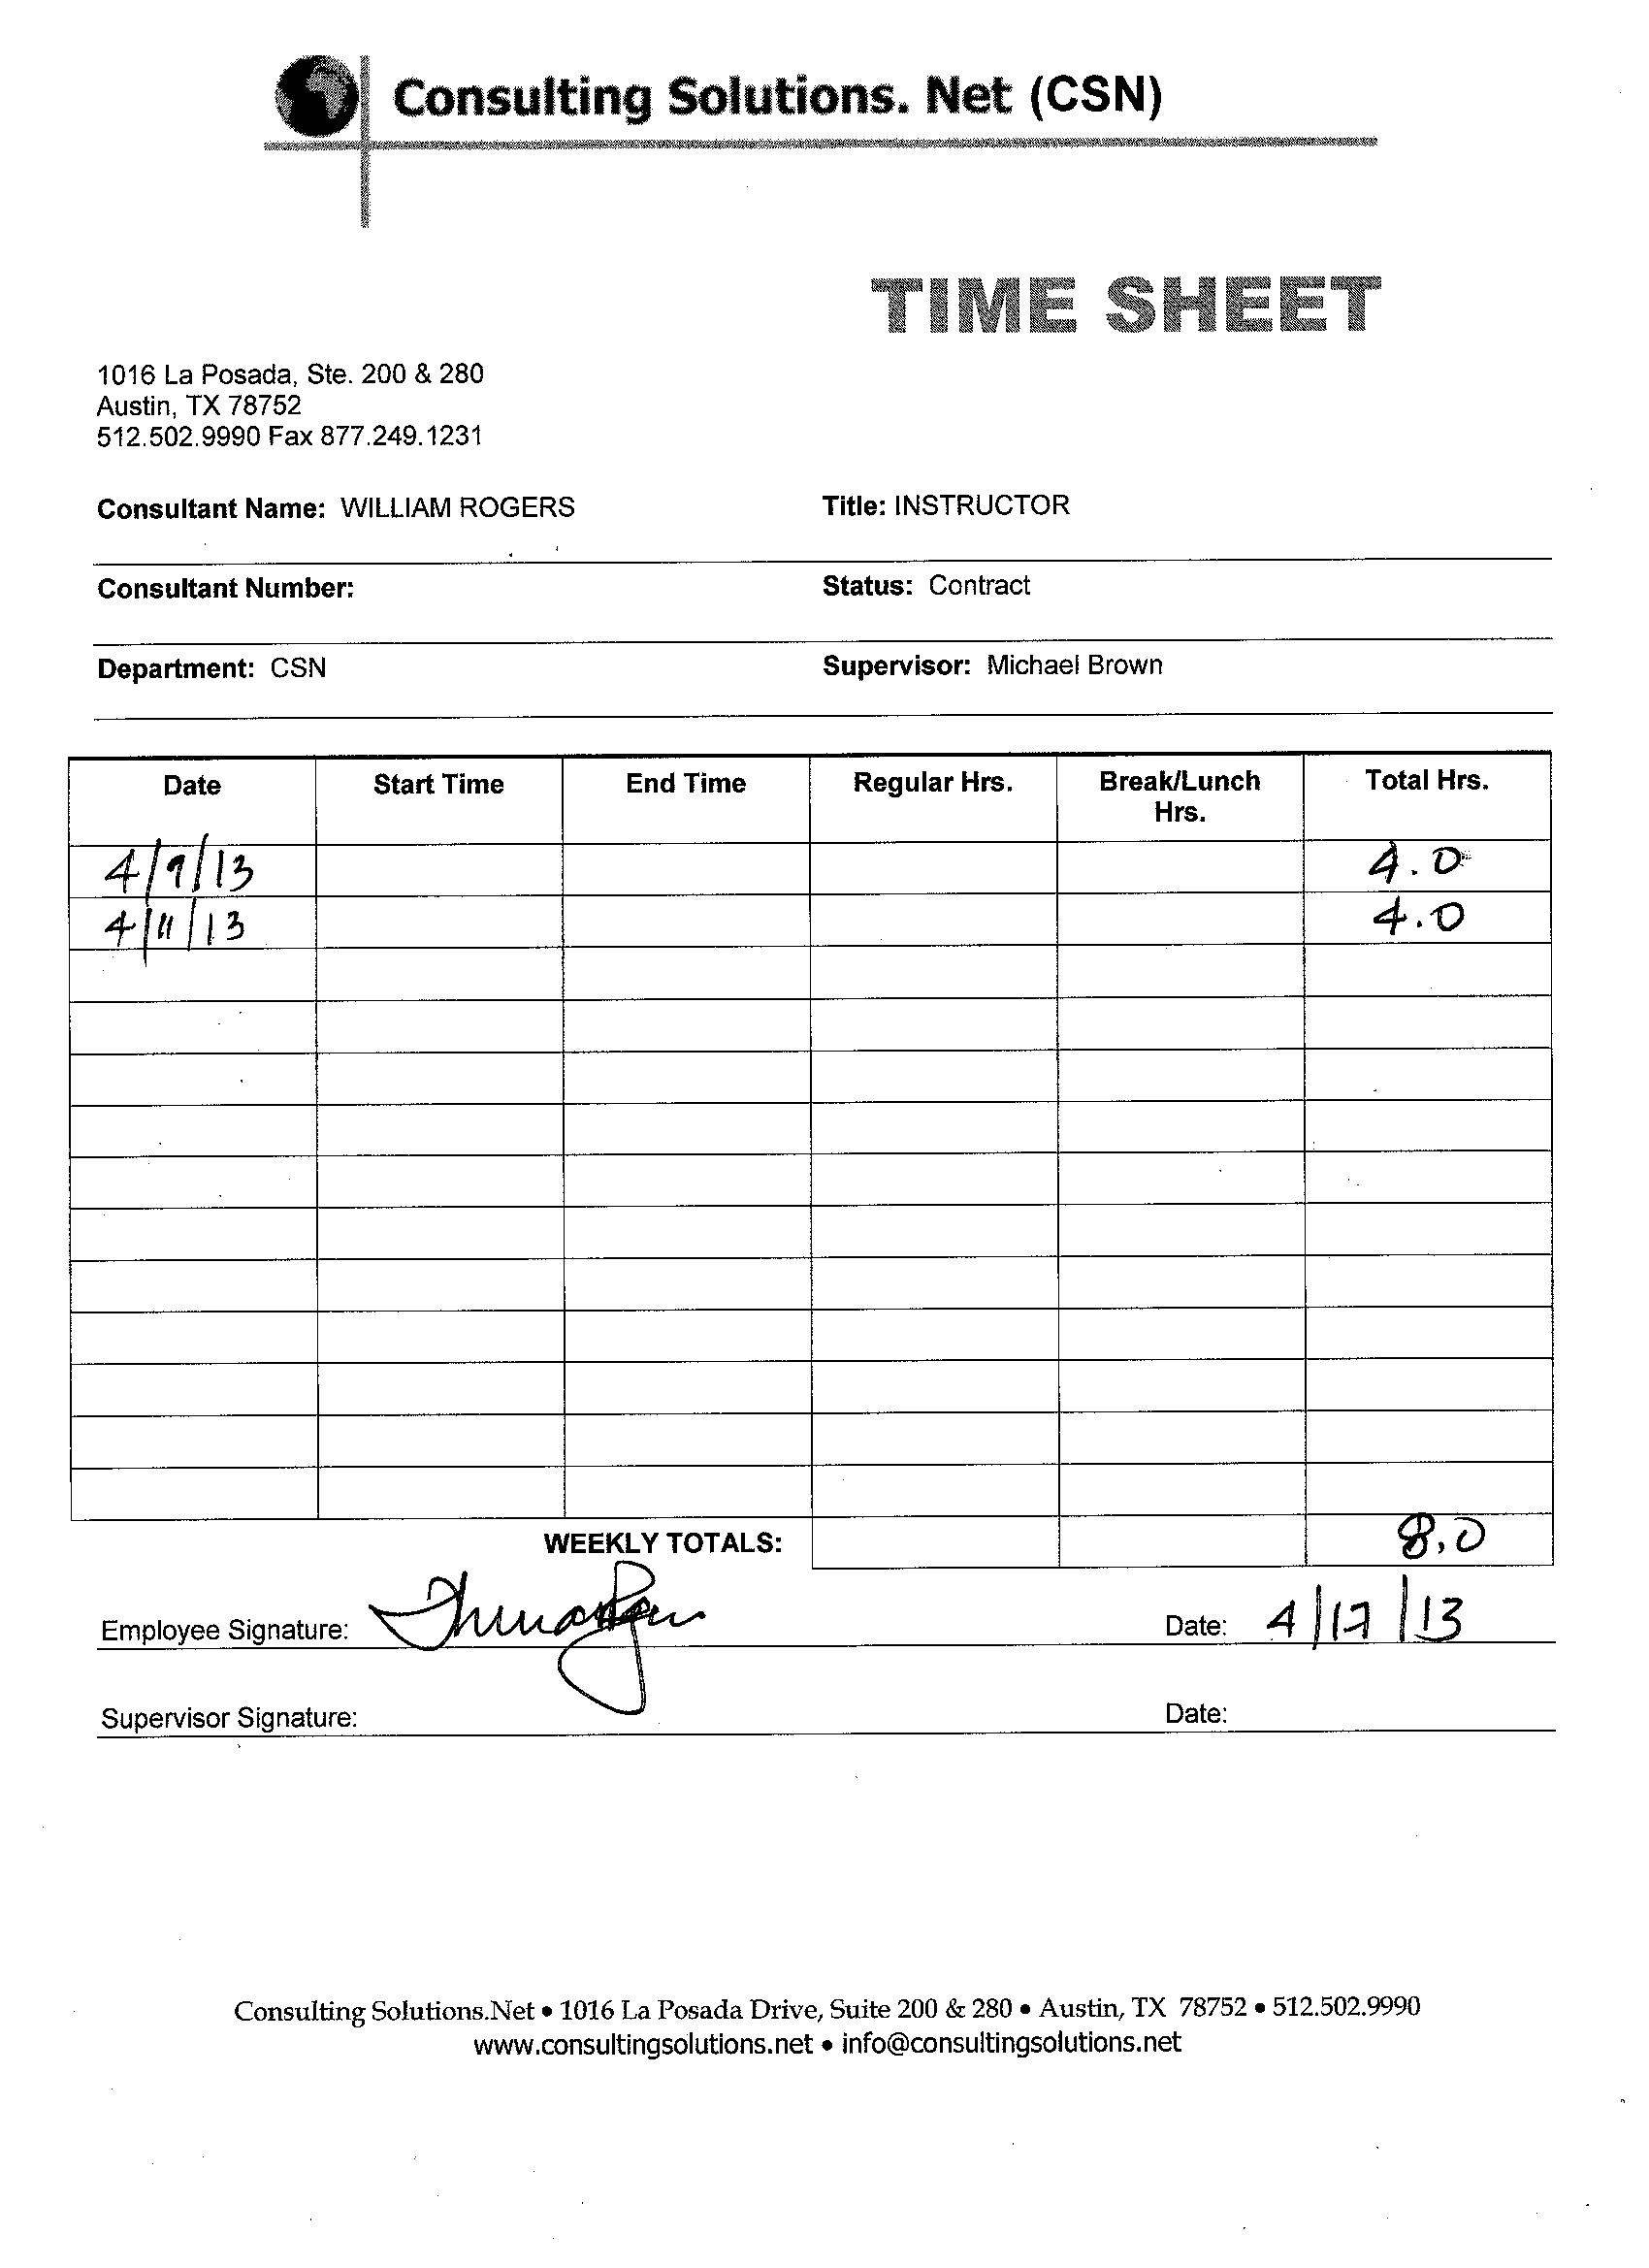 Consulting Solutions. Net (CSN)
TIME SHEET
1016 La Posada, Ste. 200 & 280
Austin, TX 78752
512.502.9990 Fax 877.249.1231
Consultant Name: WILLIAM ROGERS Title: INSTRUCTOR
Consultant Number: Status: Contract
Department: CSN Supervisor: Michael Brown
Date Start Time End Time Regular Hrs. Break/Lunch Hrs. Total Hrs.
4/9/13 4.0
4/11/13 4.0
WEEKLY TOTALS: 8.0
Employee Signature: Date: 4/17/13
Supervisor Signature: Date:
Consulting Solutions.Net • 1016 La Posada Drive, Suite 200 & 280 • Austin, TX 78752 • 512.502.9990
www.consultingsolutions.net • info@consultingsolutions.net